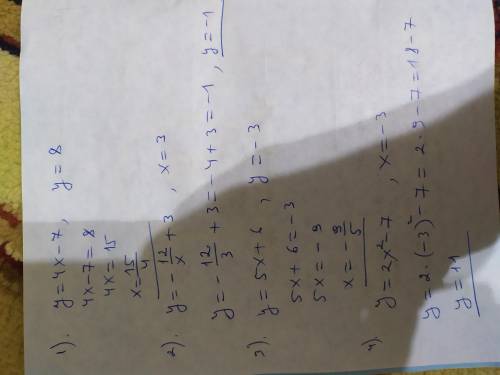 1). y=4x-7, y=8
4x-7=8
4x=15
x=15/4
2). y=-12/x+3, x=3
y=-12/3+3=-4+3=-1, y=-1
3). y=5x+6, y=-3
5x+6=-3
5x=-9
x=-9/5
4). y=2x²-7, x=-3
y=2·(-3)²-7=2·9-7=18-7
y=11